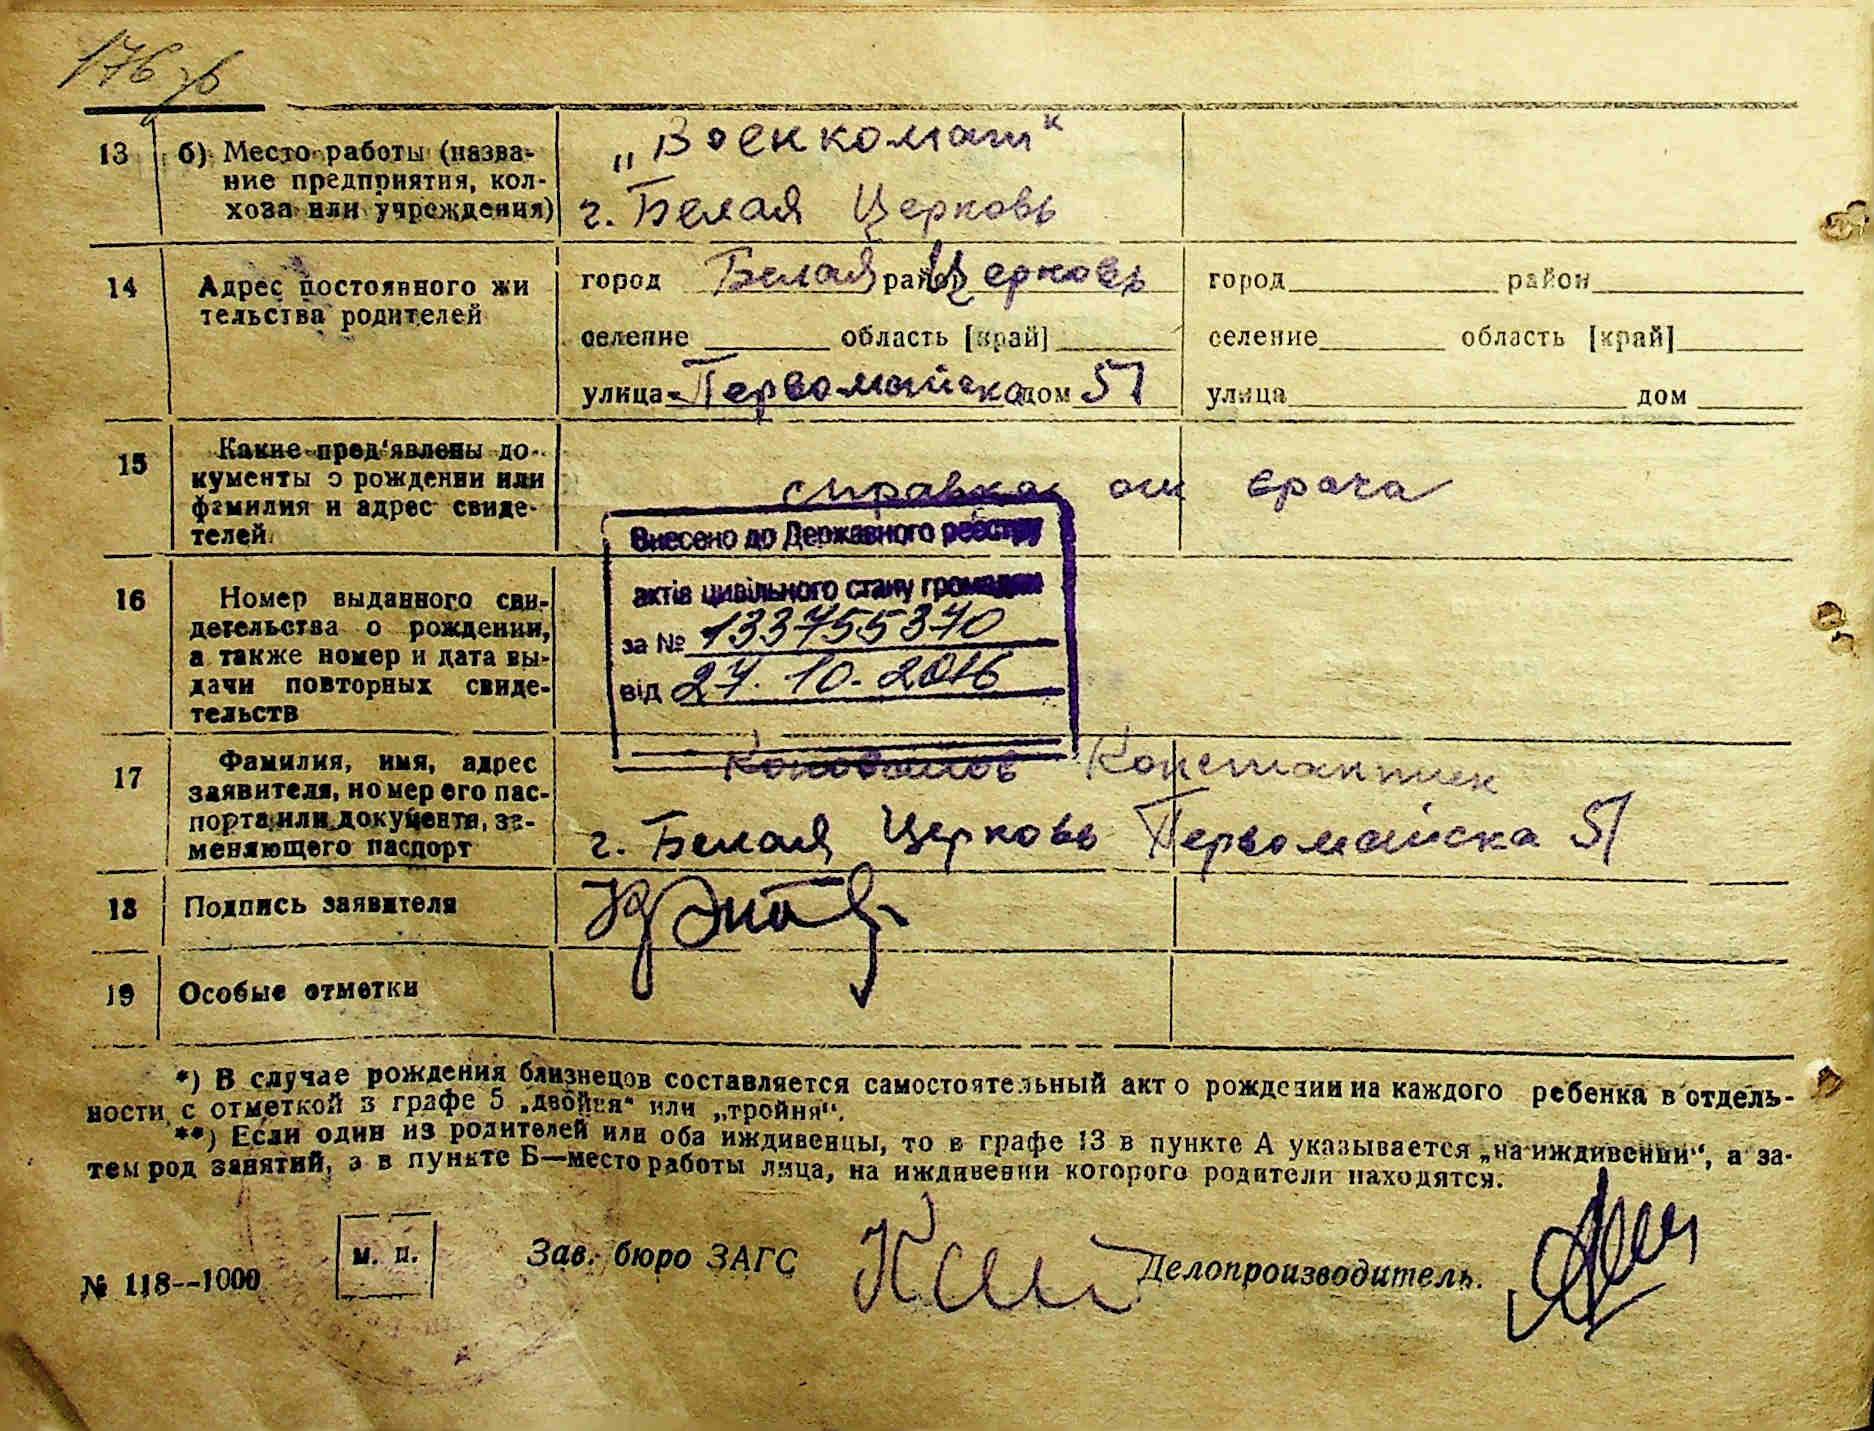 176 об
13 б) Место работы (назва-
ние предприятия, кол-
хоза или учреждения)
„Военкомат“
г. Белая Церковь
14 Адрес постоянного жи
тельства родителей
город Белая район Церковь
селение область [край]
улица Первомайска дом 51
город район
селение область [край]
улица дом
15 Какие пред'явлены до-
кументы о рождении или
фамилия и адрес свиде-
телей
справка от врача
Внесено до Державного реєстру
актів цивільного стану громадян
за № 133755370
від 27.10.2016
16 Номер выданного сви-
детельства о рождении,
а также номер и дата вы-
дачи повторных свиде-
тельств
17 Фамилия, имя, адрес
заявителя, номер его пас-
порта или документа, за-
меняющего паспорт
Коновалов Константин
г. Белая Церковь Первомайска 51
18 Подпись заявителя
19 Особые отметки
*) В случае рождения близнецов составляется самостоятельный акт о рождении на каждого ребенка в отдель-
ности с отметкой в графе 5 „двойня“ или „тройня“.
**) Если один из родителей или оба иждивенцы, то в графе 13 в пункте А указывается „на иждивении“, а за-
тем род занятий, а в пункте Б—место работы лица, на иждивении которого родители находятся.
м. п.
Зав. бюро ЗАГС
Делопроизводитель.
№ 118--1000